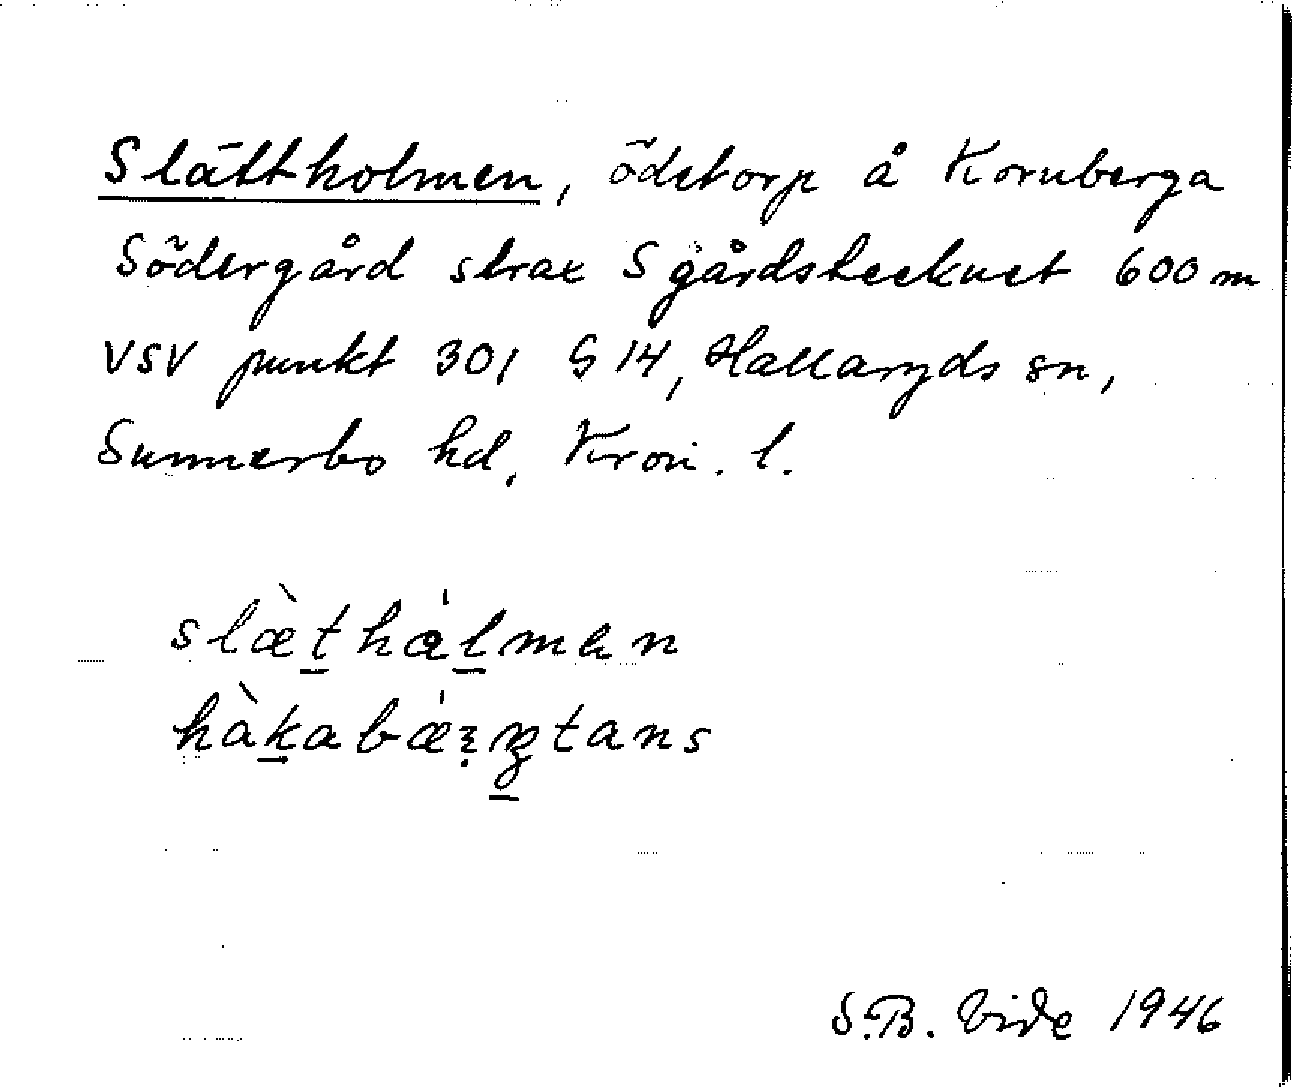 Slättholmen, ödetorp å Kornberga
Södergård strax S gårdstecknet 600 m
VSV punkt 301 G 14, Hallaryds sn,
Sunnerbo hd, Kron. l.
slæ̀t̲hål̲men
hàk̲abǽ
S.B. Vide 1946